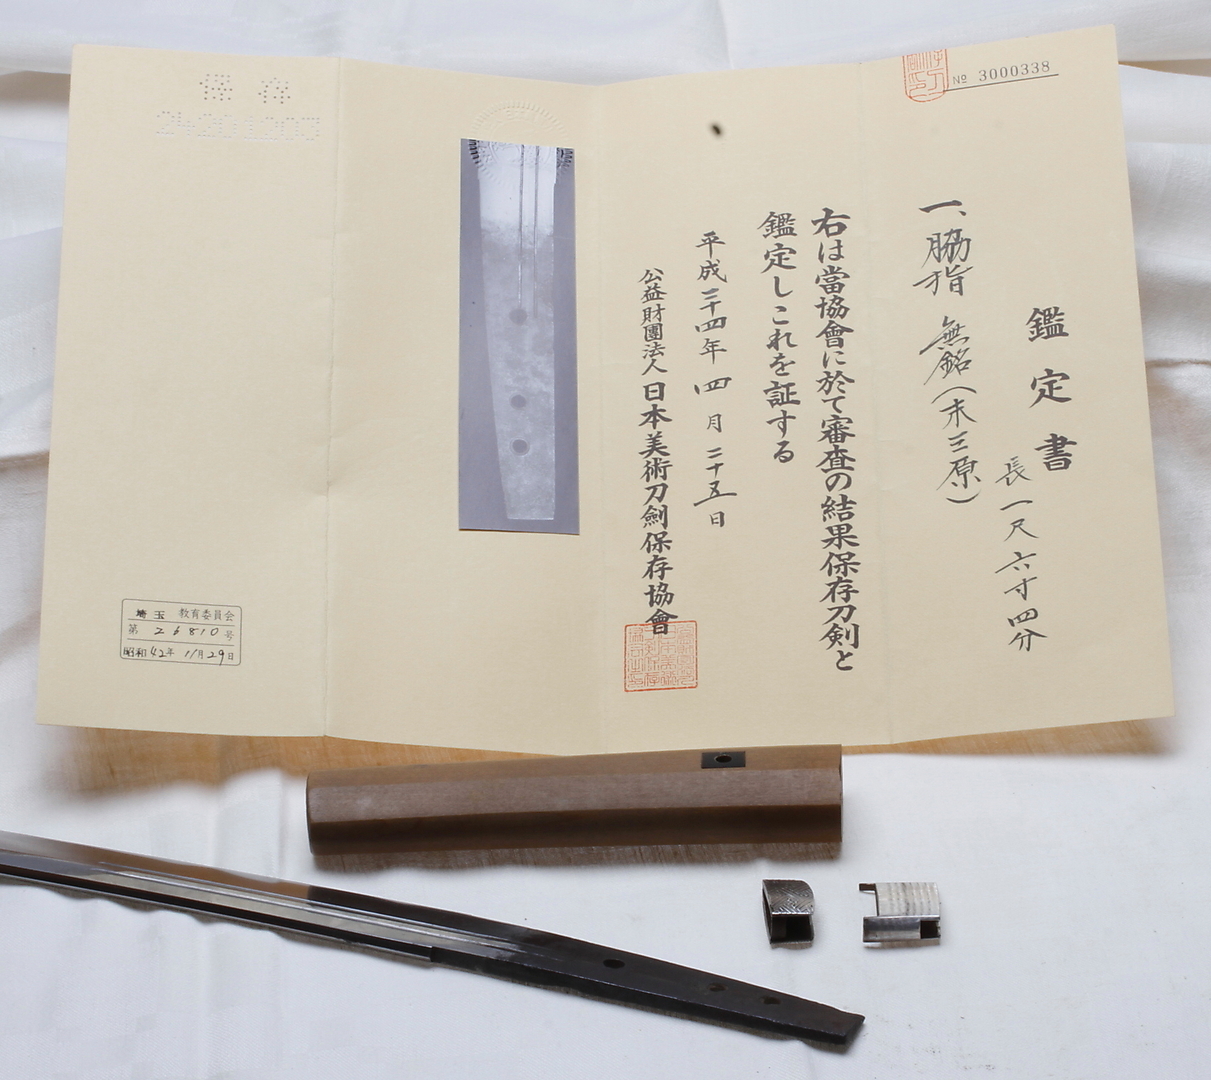 № 3000338
鑑定書
長一尺六寸四分
一、脇指 無銘(末三原)
右は當協會に於て審査の結果保存刀剣と
鑑定しこれを証する
平成二十四年四月二十五日
公益財團法人日本美術刀劍保存協會
保存
埼玉 教育委員会
第 26810 号
昭和42年11月29日